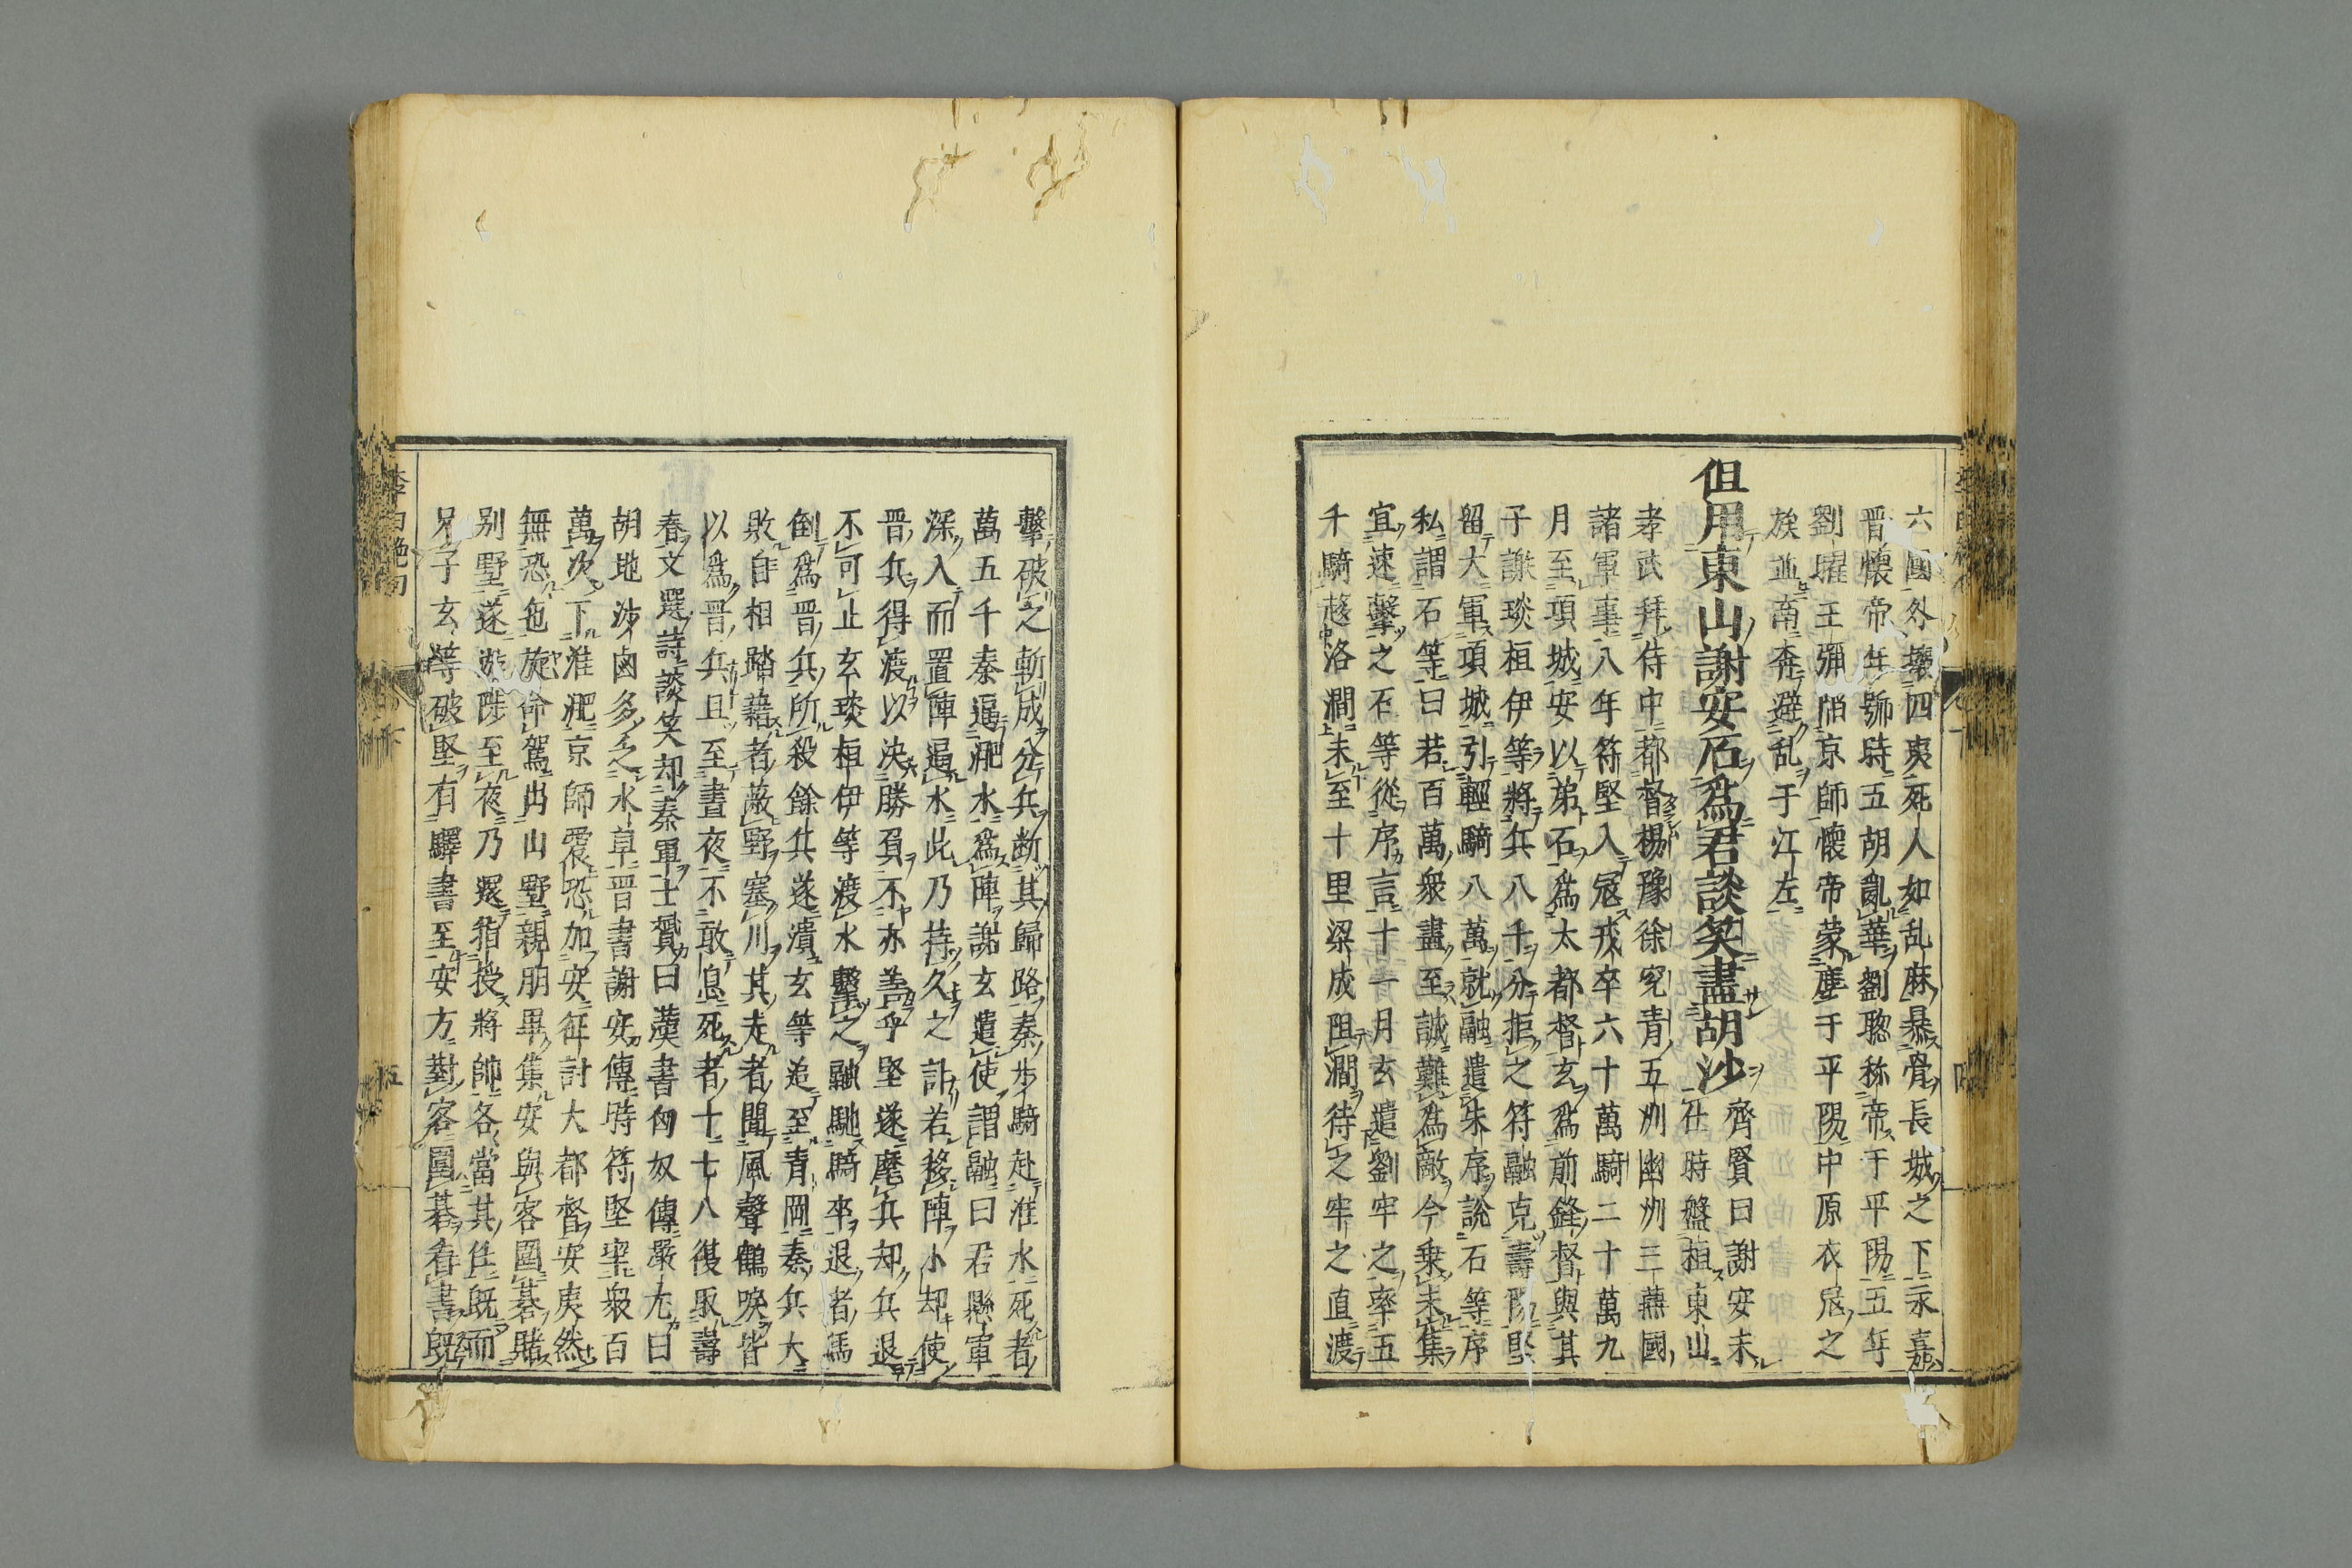 六國久壞四夷死人如乱麻暴骨長城之下永嘉
晋懷帝年号時五胡亂華劉聡称帝于平陽五年
劉曜王彌陷京師懷帝蒙塵于平陽中原衣冠之
族並南奔避乱于江左
但用東山謝安石為君談笑盡胡沙
齊賢曰謝安未
仕時盤桓東山
孝武拜侍中都督楊豫徐兖青五州幽州三燕國
諸軍事八年符堅入冦戎卒六十萬騎二十萬九
月至項城安以弟石為太都督玄為前鋒督與其
子謝琰桓伊等將兵八千分拒之符融克壽陽堅
留大軍項城引輕騎八萬就融遣朱序說石等序
私謂石等曰若百萬衆盡至誠難為敵今乗未集
宜速擊之石等從序言十一月玄遣劉牢之率五
千騎趍洛澗未至十里梁成阻澗待之牢之直渡
擊破之斬成分兵断其歸路秦步騎赴淮水死者
萬五千秦逼淝水為陣謝玄遣使謂融曰君懸軍
深入而置陣逼水此乃持久之計若移陣小却使
晋兵得渡以決勝負不亦善乎堅遂麾兵却兵退
不可止玄琰桓伊等渡水擊之融馳騎卒退者馬
倒為晋兵所殺餘兵遂潰玄等追至青岡秦兵大
敗自相踏藉者蔽野塞川其走者聞風聲鶴唳皆
以為晋兵且至晝夜不敢息死者十七八復取壽
春文選詩談笑却秦軍士贇曰漢書匈奴傳嚴尤曰
胡地沙鹵多乏水草晋書謝安傳時符堅率衆百
萬次于淮淝京師震恐加安征討大都督安夷然
無恐色旋命駕出山墅親朋畢集安與客圍碁賭
别墅遂遊陟至夜乃還指授將帥各當其任既而
兄子玄等破堅有驛書至安方對客圍碁看書既